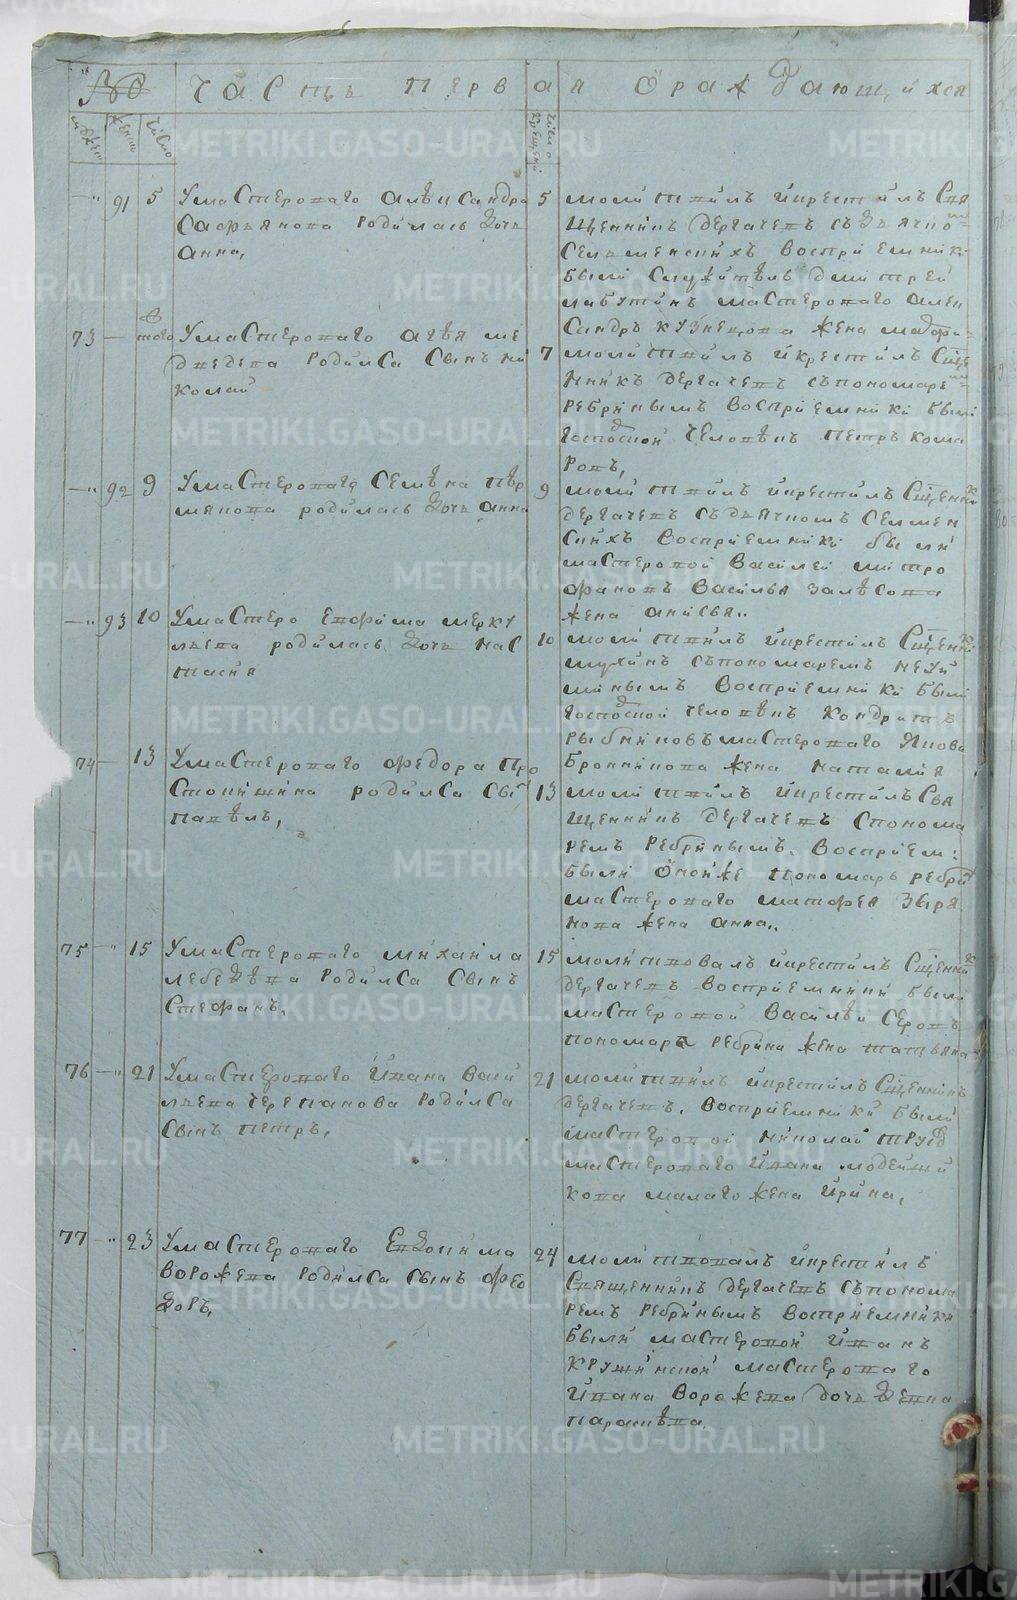 Часть первая о раждающихся
мужеск женск число
число крещений
91 5 Умастероваго алѣксандра
Сафьянова родилась дочь
анна,
5 молитвилъ икрестилъ Свя
щенникъ дергачевъ съдьячко
Селеменскихъ воспріемники
были служитель дмитрей
лабутинъ мастероваго алек
сандръ кузнецова жена
73 того Умастероваго агѣя ме
дведева родилса сынъ ни
колай
7 молитвилъ икрестилъ Сще
нникъ дергачевъ съпономаре
ребринымъ воспріемники были
господской человѣкъ петръ кома
ровъ,
92 9 Умастероваго семѣна пѣр
мякова родилась дочь анна
9 молитвилъ икрестилъ Сщенник
дергачевъ съдьячкомъ селмен
скихъ воспріемники были
мастеровой василей митро
фановъ василья залѣсова
жена анисья.
93 10 Умастеро ефима мерку
льева родилась дочь нас
тасия
10 молитвилъ икрестилъ Сщенник
мухинъ съпономаремъ неуй
минымъ воспріемники были
господской человѣкъ кондратъ
рыбниковъ мастероваго якова
бронникова жена наталия
74 13 Умастероваго федора про
стокишина родилса сы
павѣлъ,
13 молитвилъ икрестилъ Свя
щенникъ дергачевъ спонома
ремъ ребринымъ. воспріем:
были онойже пономарь ребри
мастероваго матфея зыря
нова жена анна.
75 15 Умастероваго михаила
лебедѣва родилса сынъ
стефанъ.
15 молитвовалъ икрестилъ Сщенник
дергачевъ воспріемники были
мастеровой василѣй серовъ
пономаря ребрина жена татьяна
76 21 Умастероваго ивана васи
льева черепанова родилса
сынъ петръ,
21 молитвилъ икрестилъ Сщенникъ
дергачевъ. воспріемники были
мастеровой николай
мастероваго ивана
кова малаго жена ирина,
77 23 Умастероваго евдокима
ворожева родилса сынъ фео
доръ,
24 молитвовалъ икрестилъ
Священникъ дергачевъ съпонома
ремъ ребринымъ воспріемники
были мастеровой иванъ
крушинской мастероваго
ивана ворожева дочь девка
параскѣва
METRIKI.GASO-URAL.RU